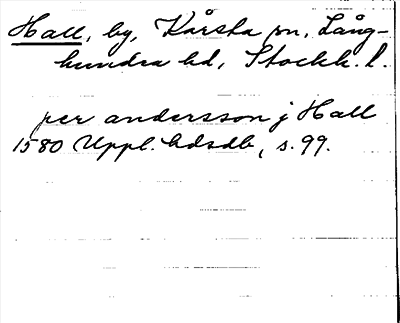 Hall, by, Kårsta sn, Lång-
hundra hd, Stockh. l.
per andersson j Hall
1580 Uppl. hdsdb, s. 99.